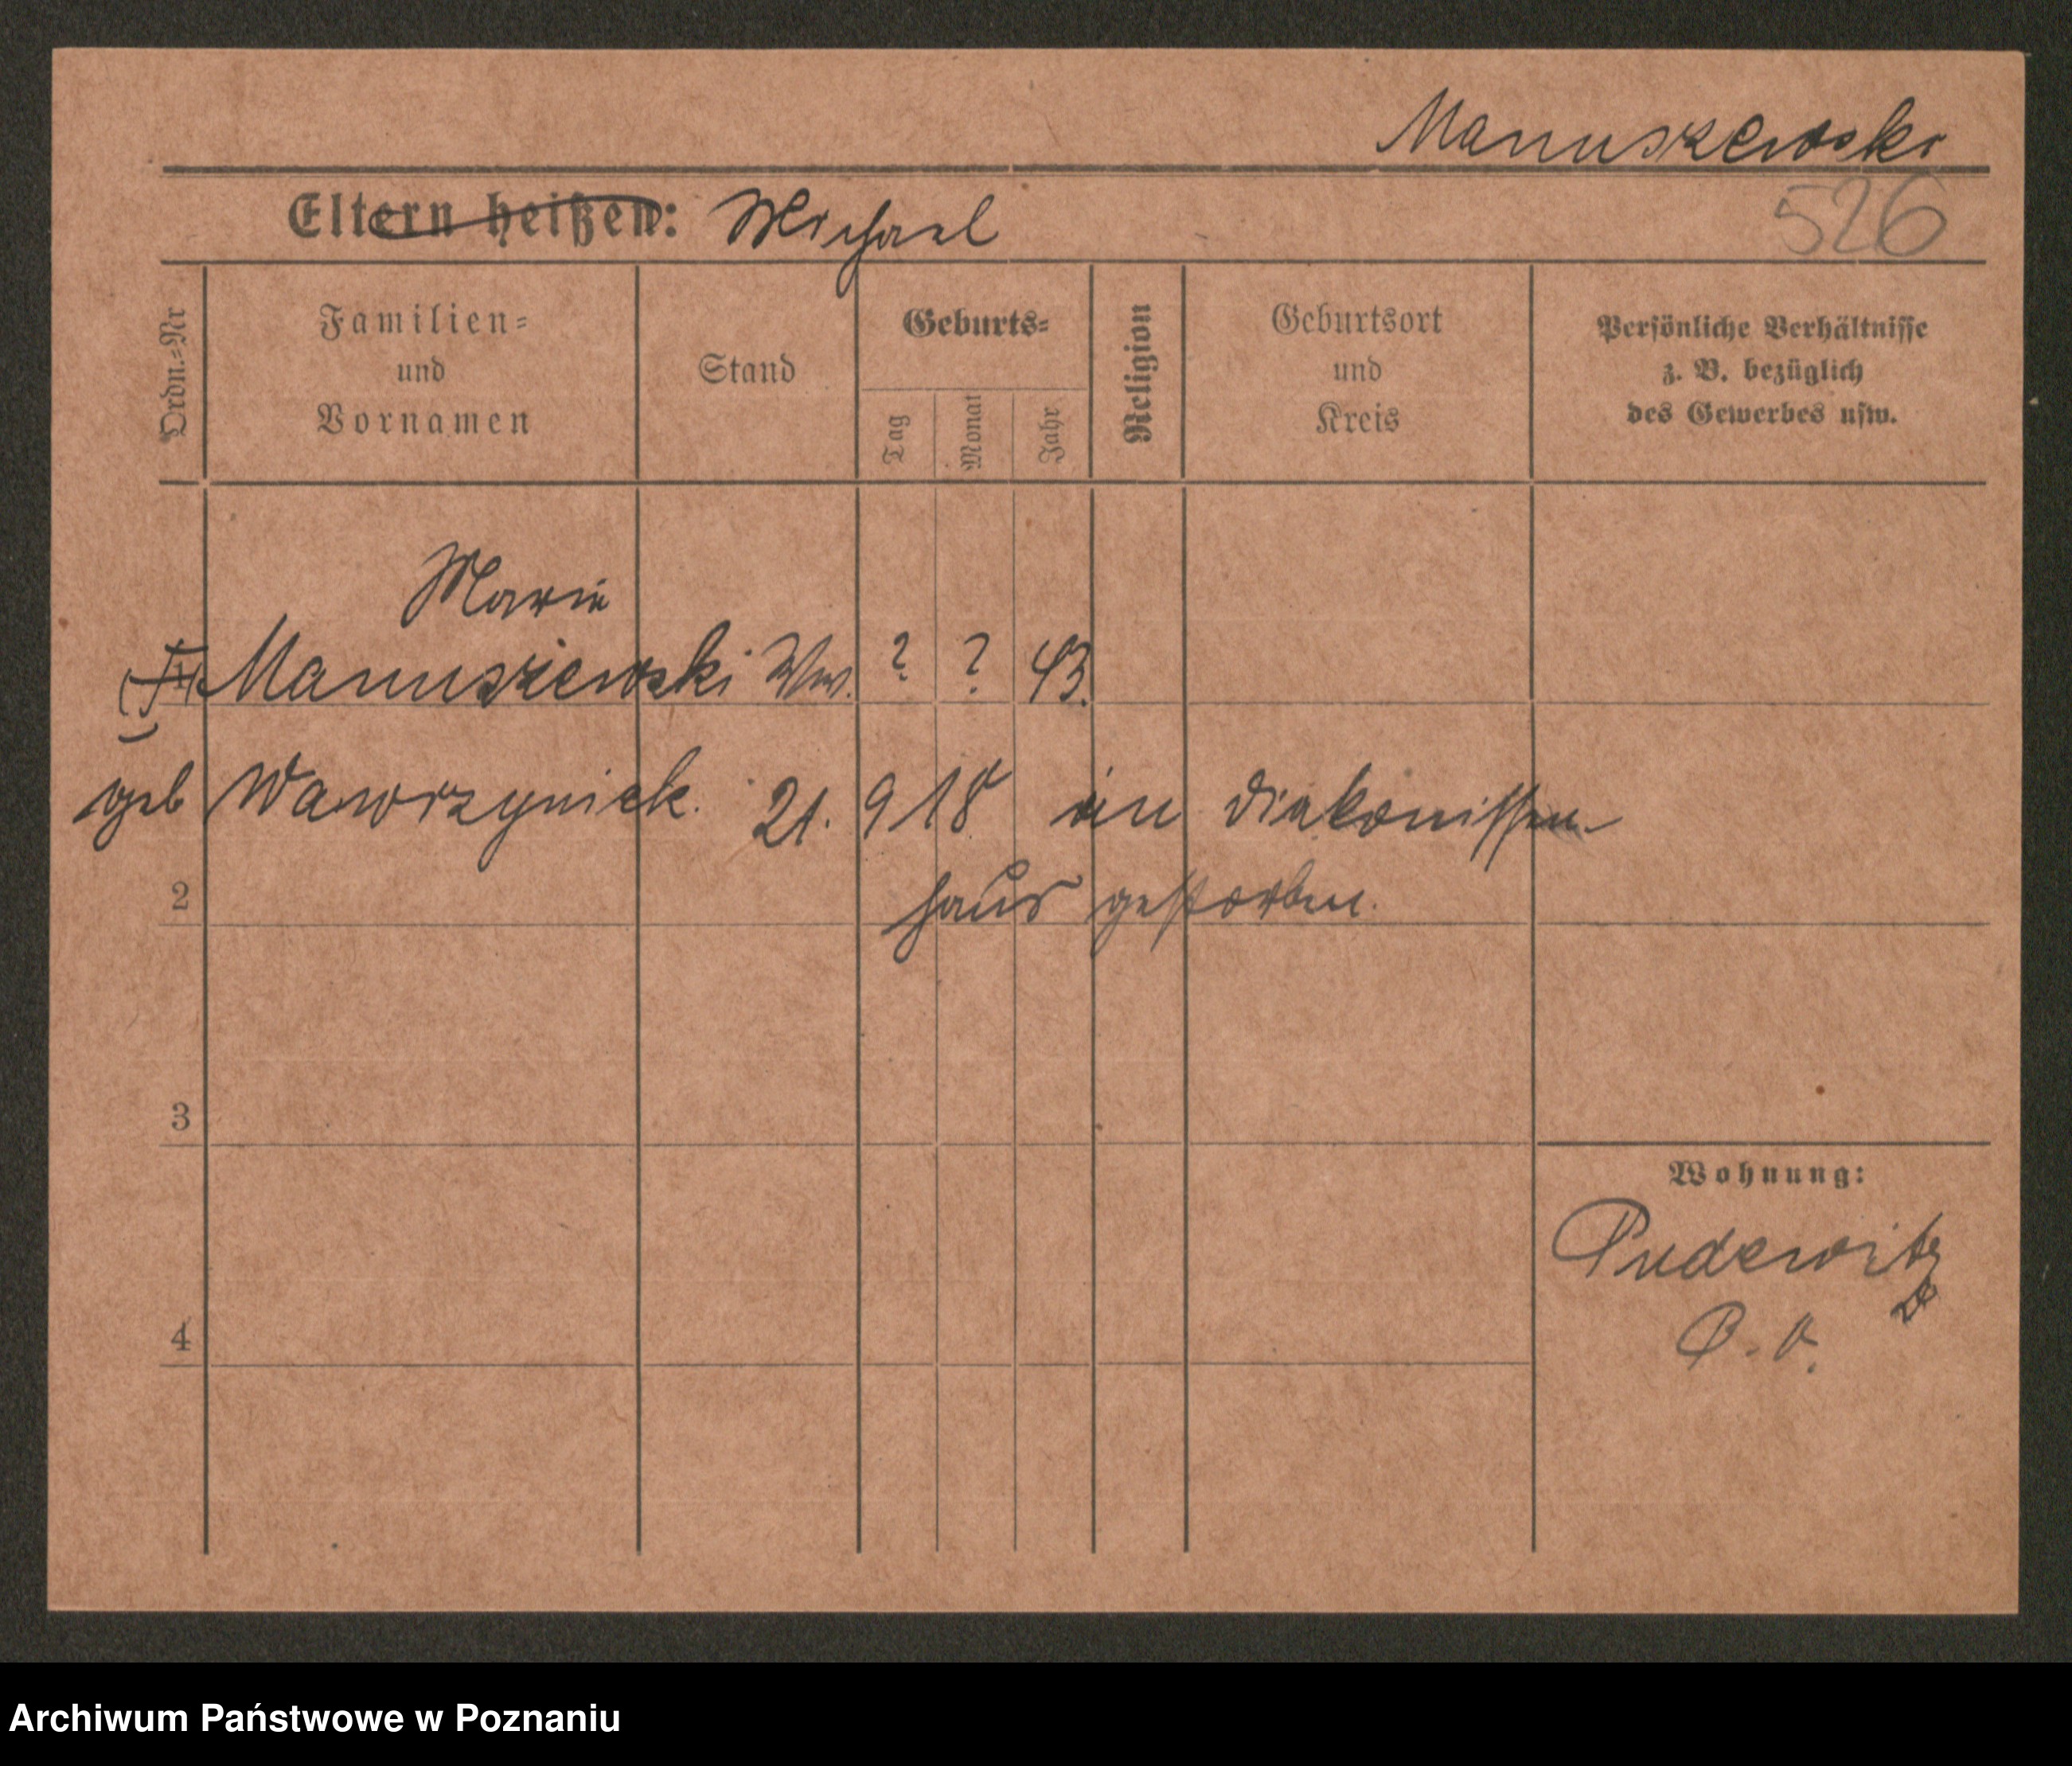 Manuszewski
Eltern heißen: Michael
526
Ordn.=Nr
Familien=
und
Vornamen
Stand
Geburts=
Tag
Monat
Jahr
Religion
Geburtsort
und
Kreis
Persönliche Verhältnisse
z. B. bezüglich
des Gewerbes usw.
Marie
Manuszewski Ww. ? ? 43.
geb Wawrzyniak. 21. 9 18 im Diakonissen-
haus gestorben.
2
3
Wohnung:
Pudewitz
P. O.
4
Archiwum Państwowe w Poznaniu